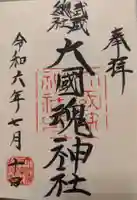 奉拝
武蔵
総社
大國魂神社
令和六年七月十日